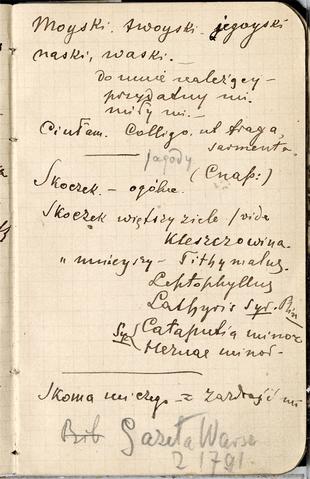 Moyski. twoyski. jegoyski
naski, waski. —
do mnie należący —
przydatny mi.
miły mi. —
Ciułam. Colligo. ut fraga,
sarmenta
jagody
(Cnap:)
Skoczek. — ogólne.
Skoczek większy ziele / vide
Kleszczowina.
" mnieyszy — Tithymalus.
Leptophyllus
Lathyris Syr.
Syr Cataputia minor
minor —
Skoma niczego = zazdrość mi
Bib Gazeta Warsz
z 1791.